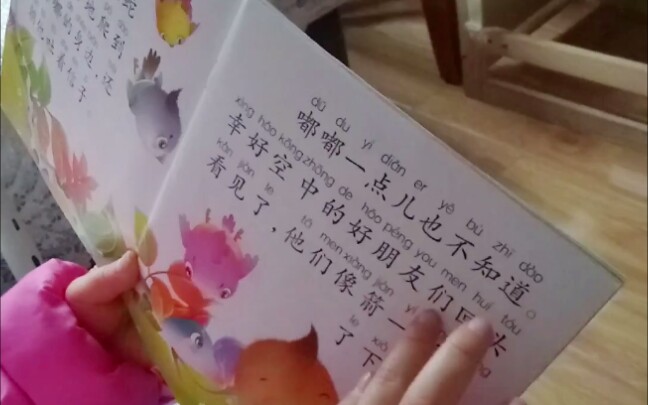 爬到
的身边,还
着信子
dū du yì diǎn er yě bù zhī dào
嘟嘟一点儿也不知道。
xìng hǎo kōng zhōng de hǎo péng you men huí tóu
幸好空中的好朋友们回头
kàn jiàn le tā men xiàng jiàn
看见了,他们像箭一
le
了下